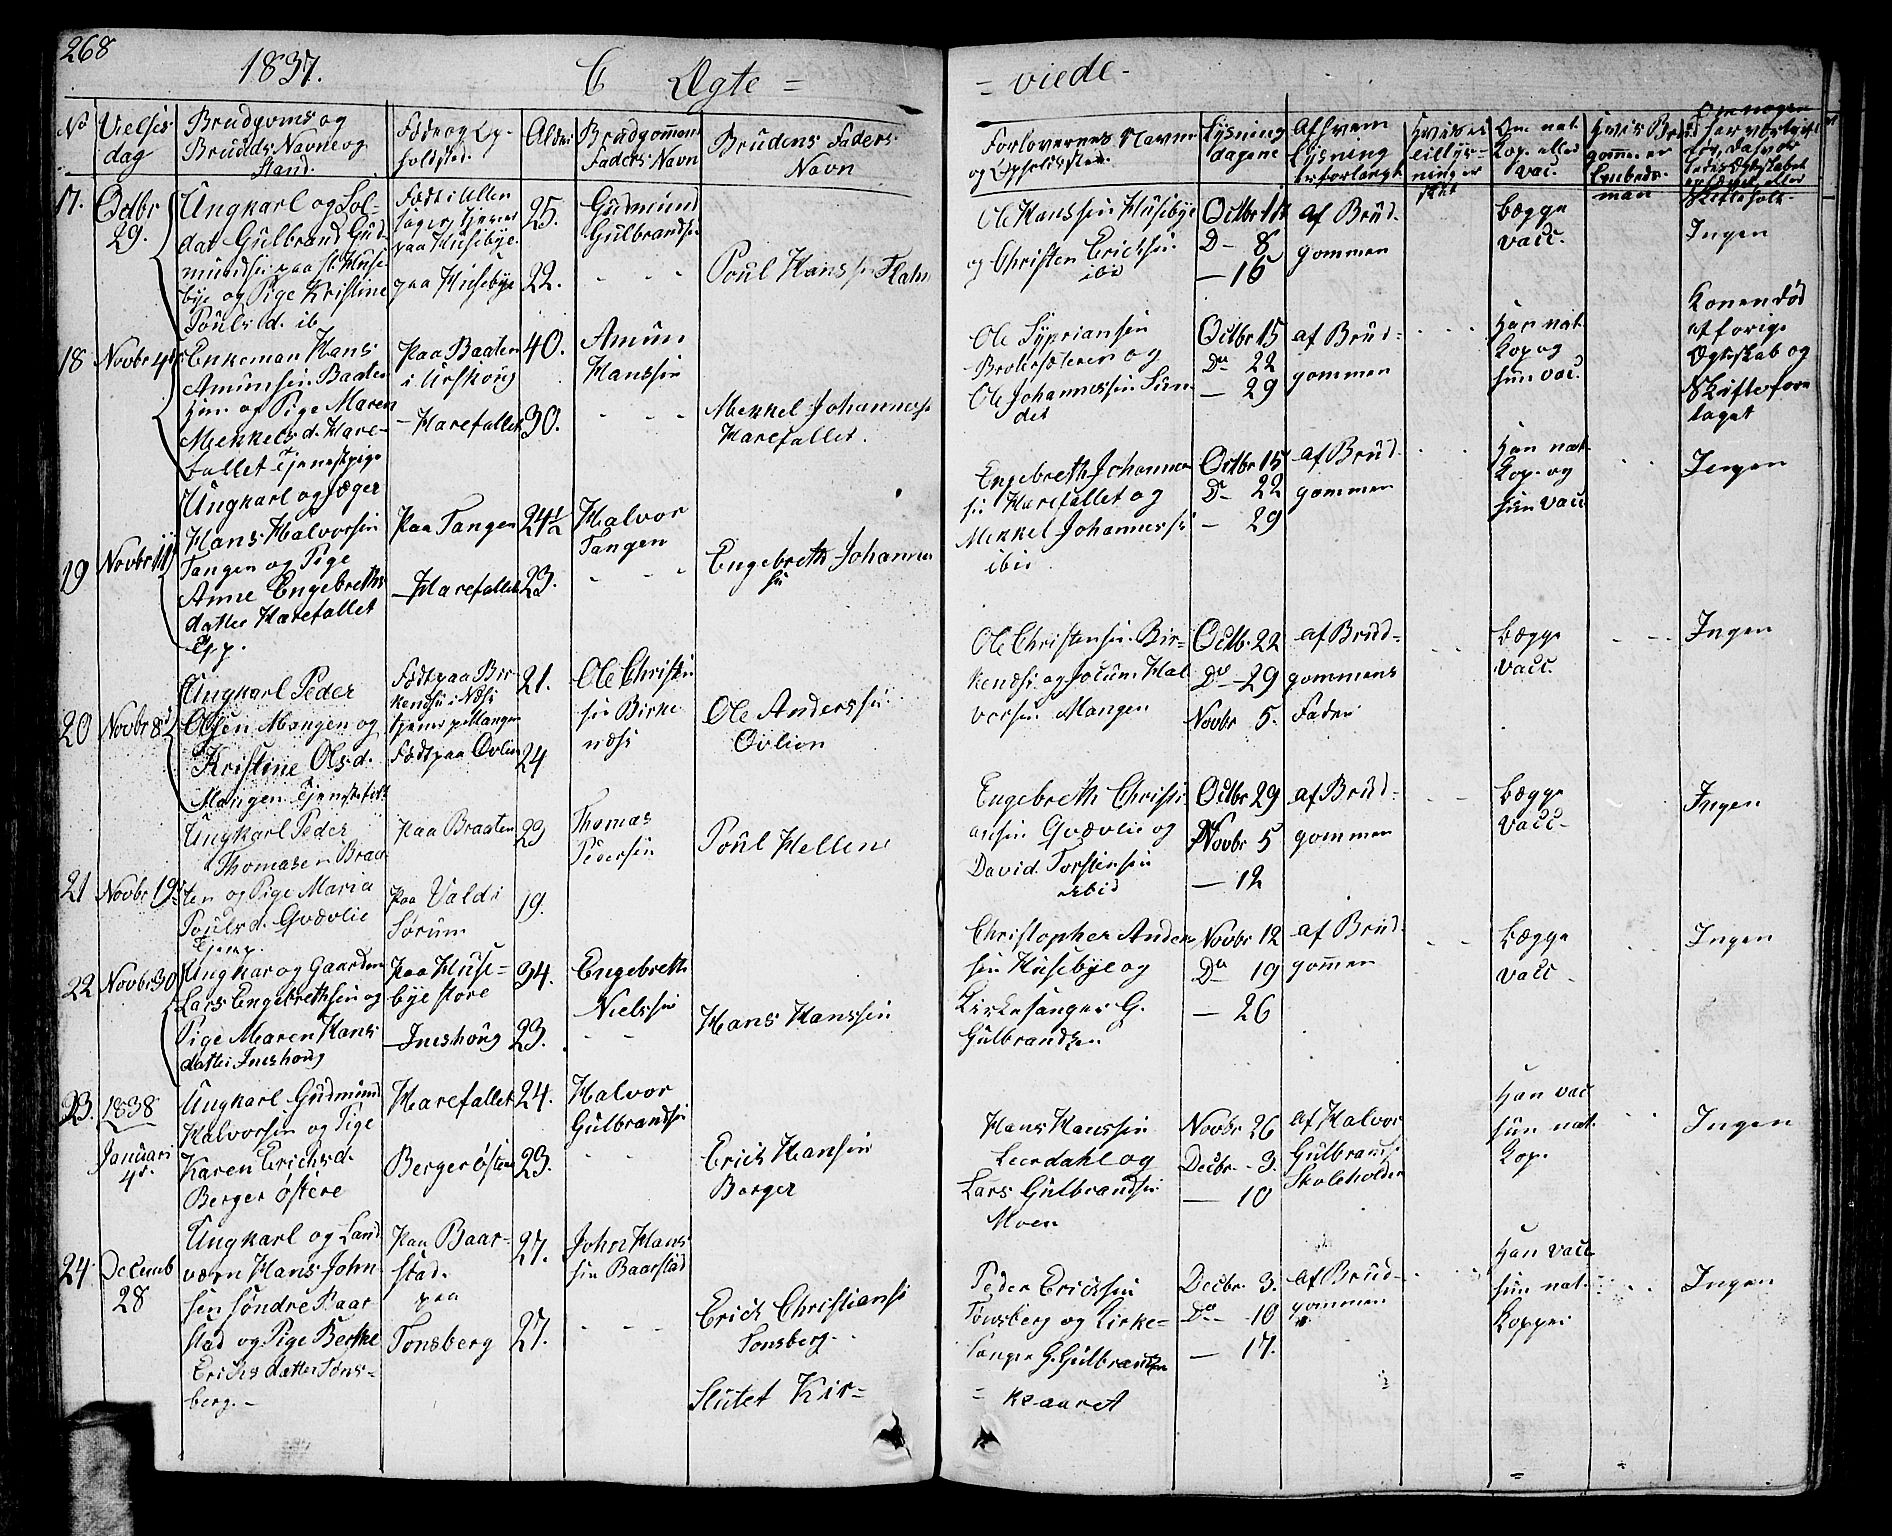 268
1837.
C Ægte =
= viede -
No
Vielses
dag
Brudgoms og
Bruds Navne og
Stand.
Føde og Op-
holdsted.
Alder
Brudgommens
Faders Navn
Brudens Faders
Navn
Forlovernes Navne
og Opholdssted.
Lysnings
dagene
Af hvem
Lysning
er forlangt
Hvis ei
til lys-
ning er
skeet
Om nat.
Kop. eller
vac.
Hvis Brud
gomme er
Embeds-
man
17.
Octbr
29.
Ungkarl og Sol-
dat Gulbrand Gud-
mundsen paa st. Huse-
bye og Pige Kristine
Pouls d. ib.
Født i Ullen
sager tjener
paa Husebye.
paa Husebye
25.
22.
Gudmund
Gulbrandsen
- - -
Poul Hanssen Flatn
Ole Hanssen Husebye
og Christen Ericksen
ibid
Octbr 1st
D- 8
- 15
af Brud-
gommen
Begge
vacc.
Ingen
18
Novbr 4de
Enkeman Hans
Amunsen Baaten
Hun og Pige Maren
Menkels d. Hare-
fallet Tjenestpige
Paa Baaten
i Urskoug
- Harefallet
40.
30.
Amun
Hanssen
- - -
Menkel Johannes
Harefallet.
Ole Sypriansen
Brotersøteren og
Ole Johannessen Sun-
det
Octbr 15
Do 22
- 29
af Brud-
gommen
Han nat.
Kop og
hun vac.
Konen død
af forige
Ægteskab og
Skifte fore
taget
19
Novbr 11
Ungkarl og Jæger
Hans Halvorsen
Tangen og Pige
Anne Engebreths
datter Harefallet
Tjp.
Paa Tangen
- Harefallet
24½
23.
Halvor
Tangen
- - -
Engebreth Johannes
sen
Engebreth Johannes
sen Harefallet og
Menkel Johannessen
ibid
Octbr 15
D- 22
- 29
af Brud-
gommen
Han nat.
Kop. og
hun vacc
Ingen
20
Novbr 8de
Ungkarl Peder
Olsen Mangen og
Kristine Ols d.
Mangen Tjenstefolk
Født paa Bir-
kenæsi i Næsi
tjener p Mangen
Født paa Ovlien
21.
24
Ole Christen
sen Birke
næsi
Ole Anderssen
Ovlien
Ole Christensen Bir-
kenæsi og Jocum Hal
vorsen Mangen
Octb. 22
Do - 29
Novbr 5.
af Brud-
gommens
Fader
Begge
vacc.
Ingen
21
Novbr 19
Ungkarl Peder
Thomasen Braa
ten og Pige Maria
Pouls d. Qvævlie
Tjenp.
Paa Braaten
Paa Valdi
Sørum
29
19.
Thomas
Pedersen
Poul Hellen
Engebreth Christi
ansen Qvævlie og
David Torstensen
ibid
Octbr 29
Novbr 5
- 12
af Brud-
gommen
Begge
vacc-
Ingen
22
Novbr 30
Ungkar og Gaardm
Lars Engebrethsen og
Pige Maren Hans
datter Ineshoug
Paa Huse-
bye store
- Ineshoug
34.
23.
Engebreth
Nielssen
- -
Hans Hanssen
Christopher Ander
sen Husebye og
Kirkesanger G.
Gulbrandsen
Novbr 12
Do 19
- 26
af Brud-
gommen
Begge
vacc-
Ingen
23.
1838
Januari
4de
Ungkarl Gudmund
Halvorsen og Pige
Karen Erichs d.
Berger østere
Harefallet
Berger østere
24.
23.
Halvor
Gulbrandsen
- -
Erich Hansen
Berger
Hans Hanssen
Leerdahl og
Lars Gulbrandsen
Moen
Novbr 26
Decbr - 3.
- 10
af Halvor
Gulbrands
Skoleholder
Han vac
hun nat.
Kop.
Ingen
24
Decemb
28
Ungkarl og Land
værn Hans John
sen søndre Baar
stad og Pige Berthe
Erichs datter Tøns-
berg.-
Paa Baar-
stad.
paa
Tonsberg
27.
27.
John Hans
sen Baarstad
- - -
Erich Christians
Tonsberg.
Peder Ericksen
Tønsberg og Kirke-
sanger G. Gulbrandsen
Decbr 3.
Do - 10
- 17.
af Brud-
gommen
Han vacc
hun nat
Kopper
Ingen
Slutet Kir-
= keaaret